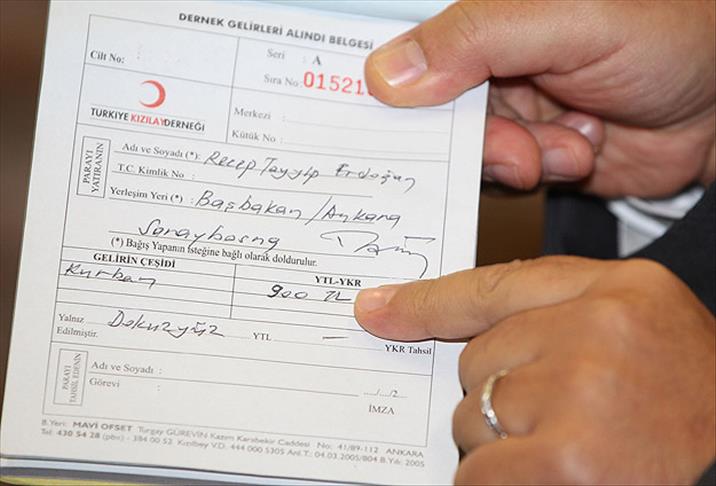 DERNEK GELİRLERİ ALINDI BELGESİ
Cilt No: :
Seri : A
Sıra No: 01521
TÜRKİYE KIZILAYDERNEĞİ
Merkezi :
Kütük No :
PARAYI YATIRANIN
Adı ve Soyadı (*): Recep Tayyip Erdoğan
T.C. Kimlik No :
Yerleşim Yeri (*) : Başbakan/Ankara
Saraybosna
(*) Bağış Yapanın isteğine bağlı olarak doldurulur.
GELİRİN ÇEŞİDİ YTL-YKR
Kurban 900 TL
Yalnız Dokuzyüz YTL — YKR Tahsil
Edilmiştir.
PARAYI TAHSİL EDENİN
Adı ve Soyadı :
Görevi : ..../..../2
İMZA
B.Yeri: MAVİ OFSET Turgay GÜREVİN Kazım Karabekir Caddesi No: 41/89-112 ANKARA
Tel: 430 54 28 (pbx) - 384 00 52 Kızılbey V.D. 444 000 5305 Anl.T.: 04.03.2005/804 B.Yılı: 2005